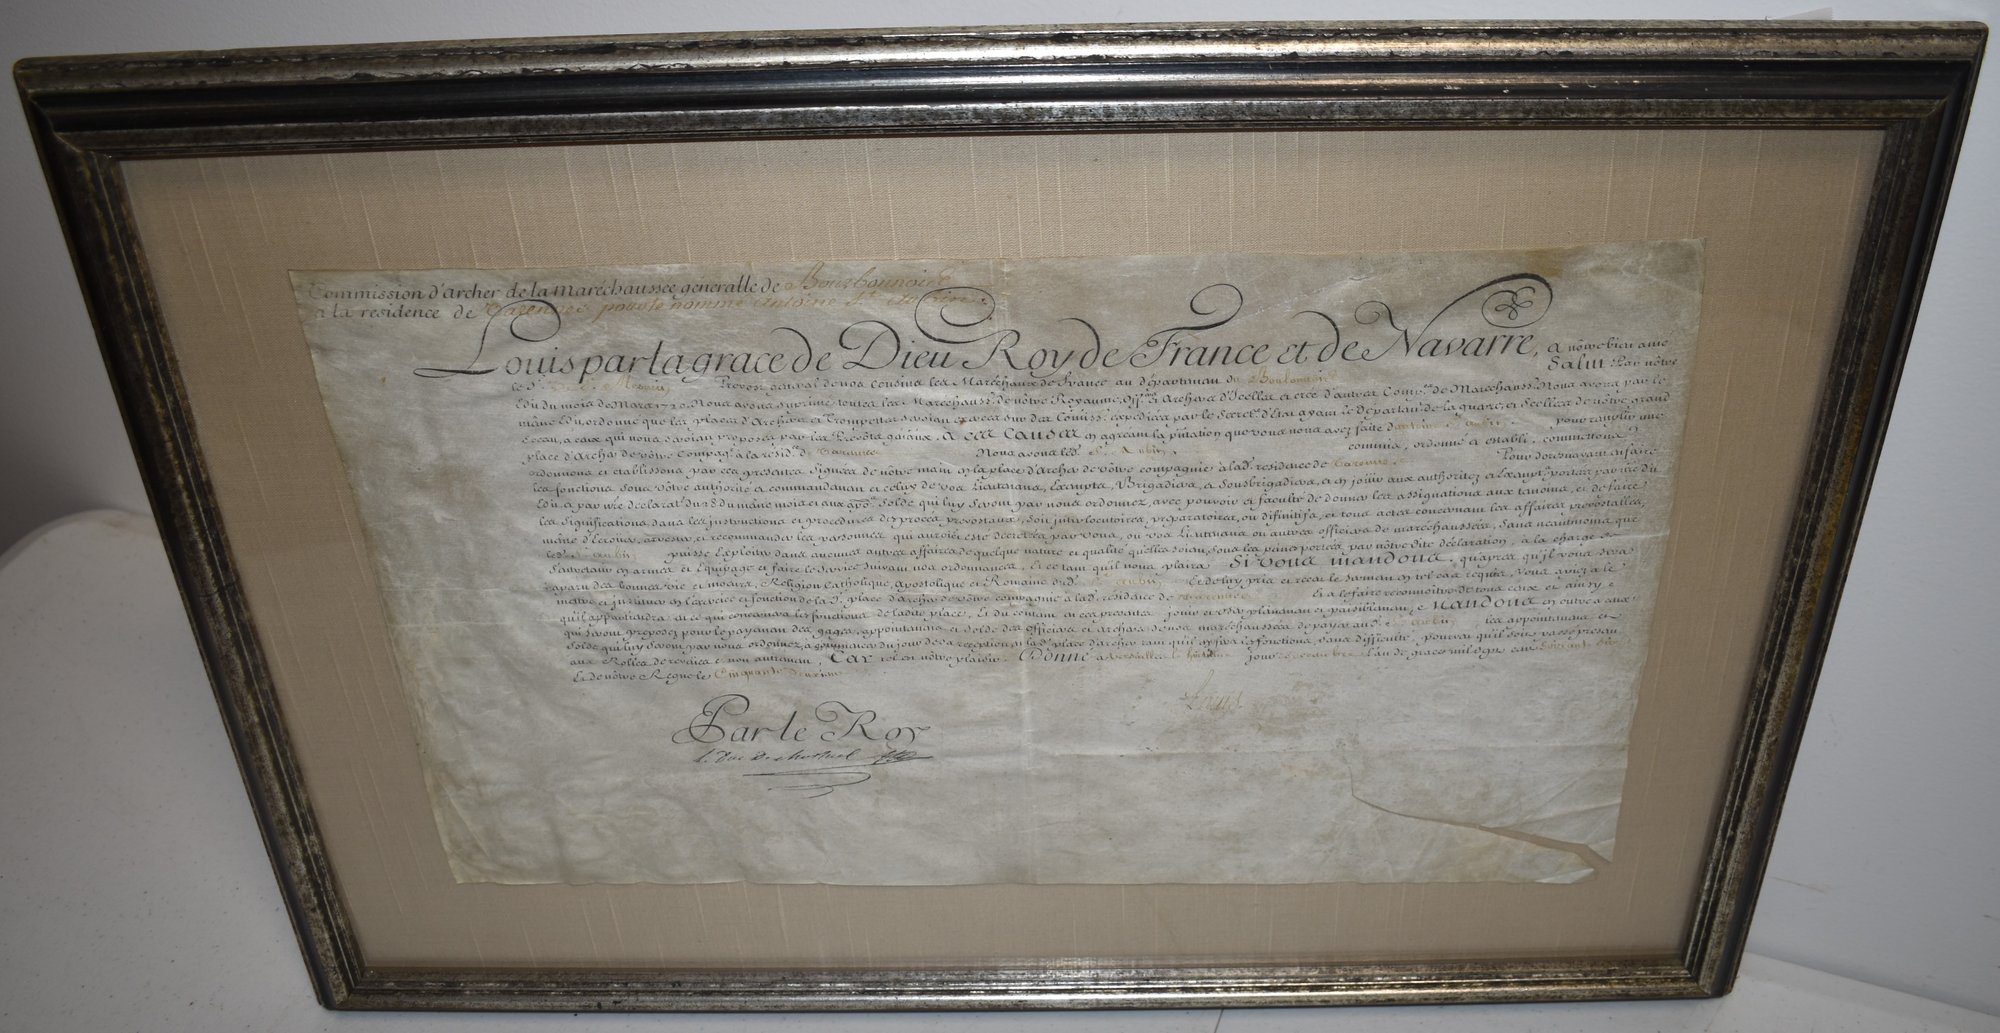 Commission d'archer de la maréchaussée généralle de Bourbonnois
a la residence de Varennes pour le nommé antoine St aubin
Louis par la grace de Dieu Roy de France et de Navarre, a nôtre bien amé
le Sr. Prevost gñaral de nos Cousins les Maréchaux de France au départemant du Salut Par nôtre
Edit du mois de Mars 1720. Nous avons suprimé toutes les Maréchauss. de nôtre Royaume, Off. et Archers d'Icelles et créé d'autres Comp. de Maréchauss. Nous avons par le
même Edit ordonné que les places d'Archers et Trompettes seroient exercées sur des Comiss. expediées par le Secret. d'Etat ayant le Départem. de la guerre, et Scellées de nôtre grand
Sceau, a ceux qui nous seroient proposez par les Prevôts gñaux. A ces Causes en agréant la que vous nous avez faite d'antoine St aubin pour remplir une
place d'Archer de vôtre Compag. a la resid. de Varennes Nous avons led. St Aubin commis, ordonné et établi, commettons
ordonnons et etablissons par ces presentes Signées de nôtre main en la place d'Archer de vôtre compagnie a lad. residence de Varennes Pour dorenavant en faire
les fonctions sous vôtre authorité et commandement et celuy de vos Lieutenans, Exempts, Brigadiers, et Sousbrigadiers, et en jouir aux authoritez et Exempt. portées par led.
Edit, et par nôtre declarat. du 28 du même mois et aux Solde qui luy seront par nous ordonnez, avec pouvoir et faculté de donner les assignations aux tamoins, et de faire
les Significations dans les instructions et procedures des procés prevostaux, soit interlocutoires, préparatoires, ou difinitifs, et tous actes concernant les affaires prevôtalles,
même d'Ecrouer, arrester et recommander les personnes qui auroient esté decretées par vous, ou vos Lieutenans ou autres officiers de maréchaussées, sans neantmoins que
led. St aubin puisse Exploiter dans aucunes autres affaires de quelque nature et qualité quelles soient, sous les peines portées par nôtre dite déclaration, a la charge de
s'entretenir en armes et Equipage et faire le service suivant nos ordonnances, Et ce tant qu'il nous plaira Si vous mandons, qu'aprés qu'il vous sera
aparu des bonnes vie et moeurs, Religion Catholique, Apostolique et Romaine dud. St aubin Et de luy pris et receu le serment en tel cas requis, vous ayiez a le
mettre et instituer en l'exercice et fonction de la d. place d'archer de vôtre compagnie a lad. residence de Varennes Et a le faire reconnoître de tous ceux et ainsy
qu'il appartiendra es ce qui concernera les fonctions de ladite place, Et du contenu en ces presentes jouir et user plainement et paisiblement, Mandons en outre a ceux
qui seront preposez pour le payement des gages, appointemens et Solde des Officiers et archers de nos maréchaussées de payer aud. St aubin les appointemens et
Solde qui luy seront par nous ordonnez, a commancer du jour de sa reception a la d. place d'archer tant qu'il en fera les fonctions sans difficulté, pourvu qu'il soit passé présent
aux Rolles de revües et non autrement, Car tel est nôtre plaisir. Donné a Versailles le jour l'an de grace mil sept cens soixante
Et de nôtre Regne le Cinquante deuxieme
Louis
Par le Roy
Le Duc de Choiseul